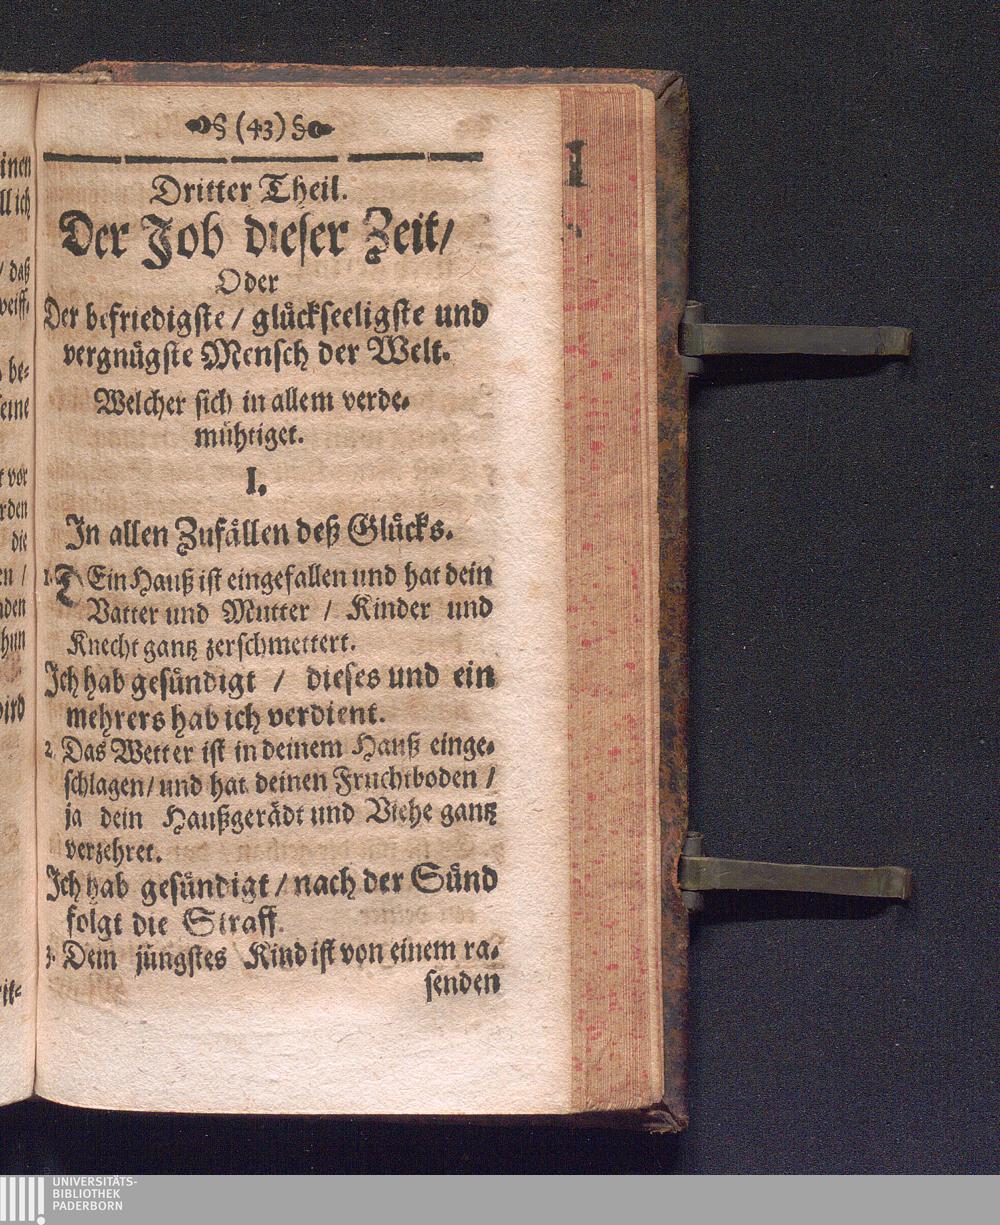 § (43) §
Dritter Theil.
Der Job dieser Zeit/
Oder
Der befriedigste / glückseeligste und
vergnügste Mensch der Welt.
Welcher sich in allem verde-
mühtiget.
I.
In allen Zufällen deß Glücks.
1. DEin Hauß ist eingefallen und hat dein
Vatter und Mutter / Kinder und
Knecht gantz zerschmettert.
Ich hab gesündigt / dieses und ein
mehrers hab ich verdient.
2. Das Wetter ist in deinem Hauß einge-
schlagen/ und hat deinen Fruchtboden /
ja dein Haußgerädt und Viehe gantz
verzehret.
Ich hab gesündigt / nach der Sünd
folgt die Straff.
3. Dein jüngstes Kind ist von einem ra-
senden
inen
ll ich
/ daß
weiff-
be-
seine
t vor
rden
die
en /
nden
hun
bird
rit-
UNIVERSITÄTS-
BIBLIOTHEK
PADERBORN